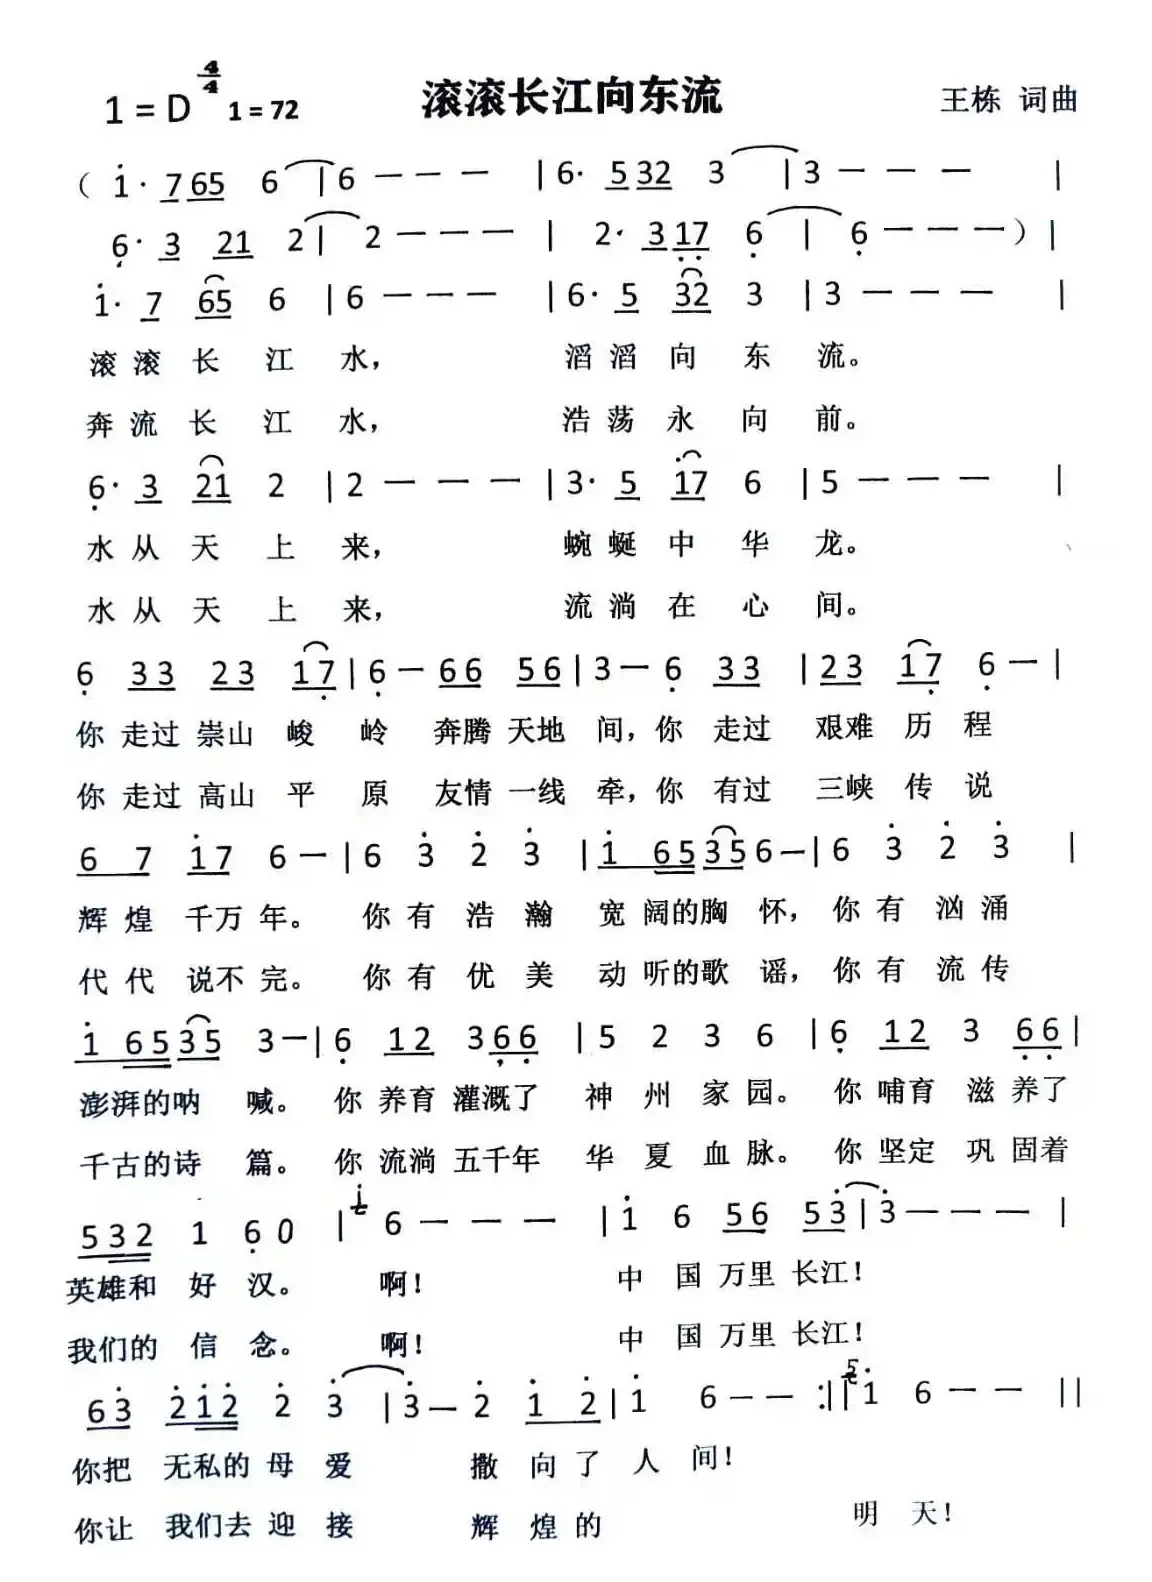 1=D 4/4 1=72 滚滚长江向东流 王栋 词曲
( i· 7 65 6 | 6 — — — | 6· 5 32 3 | 3 — — — |
6̣· 3 21 2 | 2 — — — | 2· 3 1̣7̣ 6̣ | 6̣ — — — ) |
i· 7 65 6 | 6 — — — | 6· 5 32 3 | 3 — — — |
滚滚长江水， 滔滔向东流。
奔流长江水， 浩荡永向前。
6̣· 3 21 2 | 2 — — — | 3· 5 i7 6 | 5 — — — |
水从天上来， 蜿蜒中华龙。
水从天上来， 流淌在心间。
6̣ 33 23 17̣ | 6̣ — 66 56 | 3 — 6̣ 33 | 23 17̣ 6̣ — |
你 走过 崇山 峻 岭 奔腾 天地 间，你 走过 艰难 历 程
你 走过 高山 平 原 友情 一线 牵，你 有过 三峡 传 说
6 7 i7 6 — | 6 3̇ 2̇ 3̇ | i 65 35 6 — | 6 3̇ 2̇ 3̇ |
辉 煌 千万 年。 你 有 浩 瀚 宽 阔的胸 怀，你 有 汹 涌
代 代 说不 完。 你 有 优 美 动 听的歌 谣，你 有 流 传
i 65 35 3 — | 6̣ 12 3 6̣6̣ | 5 2 3 6 | 6̣ 12 3 6̣6̣ |
澎湃的呐 喊。 你 养育 灌溉了 神 州 家 园。 你 哺育 滋 养了
千古的诗 篇。 你 流淌 五千年 华 夏 血 脉。 你 坚定 巩 固着
532 1 6̣ 0 | i 6 — — — | i 6 56 53̇ | 3̇ — — — |
英雄和 好 汉。 啊！ 中 国 万里 长江！
我们的 信 念。 啊！ 中 国 万里 长江！
63̇ 2̇i2̇ 2̇ 3̇ | 3̇ — 2̇ i 2̇ | i 6 — — :|| 5 i 6 — — ||
你把 无私的 母 爱 撒 向 了 人 间！
你让 我们去 迎 接 辉 煌 的 明 天！